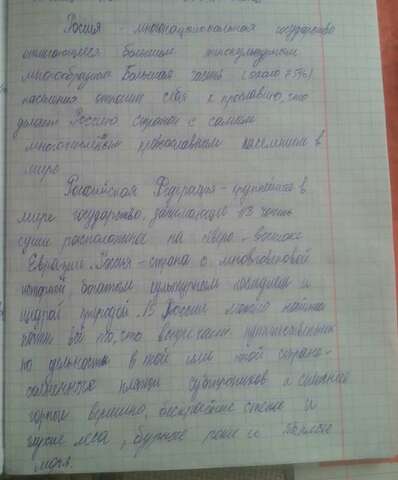 Россия - многонациональная государство
отличающееся большим этнокультурным
многообразием. Большая часть (около 75%)
населения относит себя к православию, что
делает Россию страной с самым
многочисленным православным населением в
мире.
Российская Федерация - крупнейшее в
мире государство, занимающее 1/3 часть
суши расположенное на северо-востоке
Евразии. Россия - страна с многовековой
историей богатым культурным наследием и
щедрой природой. В России можно найти
почти всё то, что встречает путешественник
по отдельности в той или иной стране -
солнечные пляжи субтропиков и снежные
горные вершины, бескрайние степи и
глухие леса, бурные реки и тёплые
моря.